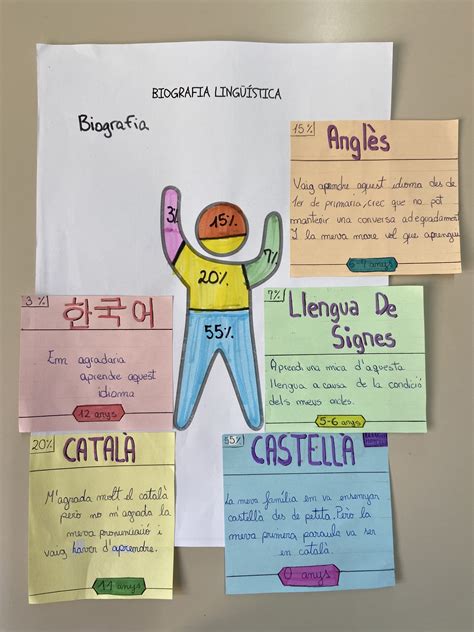 BIOGRAFIA LINGÜÍSTICA
Biografia
15%
Anglès
Vaig aprendre aquest idioma des de
1er de primària, crec que no pot
mantenir una conversa adequadament
I la meva mare vol que aprengui
anys
3%
15%
7%
20%
55%
3 %
한국어
Em agradaria
aprendre aquest
idioma
12 anys
7%
Llengua De
Signes
Aprendi una mica d'aquesta
llengua a causa de la condició
dels meus
5-6 anys
20%
CATALÀ
M'agrada molt el català
però no m'agrada la
meva pronunciació i
vaig haver d'aprendre.
11 anys
55%
CASTELLÀ
La meva família em va ensenyar
castellà des de petita. Però la
meva primera paraula va ser
en català.
0 anys